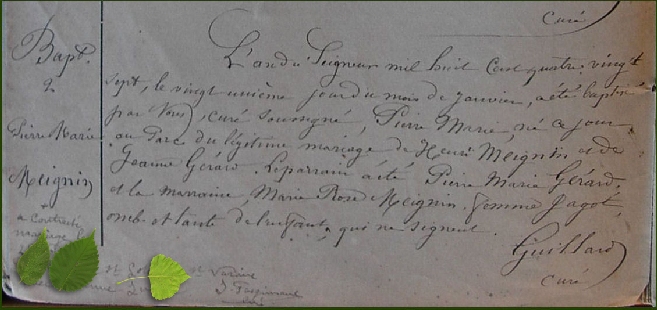 Curé
Bapt.
2
Pierre Marie
Meignin
L'an du Seigneur mil huit Cent quatre-vingt
sept, le vingt unième jour du mois de Janvier, a été baptisé
par Nous, curé soussigné, Pierre Marie, né ce jour
au Parc du légitime mariage de Henri Meignin et de
Jeanne Gérard. Le parrain a été Pierre Marie Gérard,
et la marraine, Marie Rose Meignin, femme Jagot,
oncle et tante de l'enfant, qui ne signent.
Guillard
curé
+
a Contracté
mariage